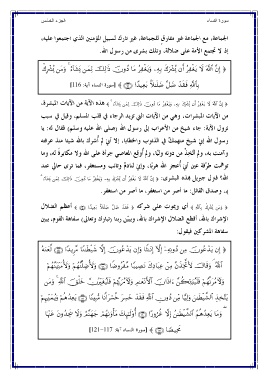 سورة النساء الجزء الخامس
الجماعة، مع الجماعة غير مفارق للجماعة، غير تارك لسبيل المؤمنين الذي اجتمعوا عليه،
إذ لا تجمع الأمة على ضلالة، وتلك بشرى من رسول الله.
﴿ إِنَّ اللَّهَ لَا يَغْفِرُ أَن يُشْرَكَ بِهِ، وَيَغْفِرُ مَا دُونَ ذَٰلِكَ لِمَن يَشَاءُ وَمَن يُشْرِكْ
بِاللَّهِ فَقَدْ ضَلَّ ضَلَالًا بَعِيدًا ﴾ [سورة النساء آية: 116]
﴿ إِنَّ اللَّهَ لَا يَغْفِرُ أَن يُشْرَكَ بِهِ، وَيَغْفِرُ مَا دُونَ ذَٰلِكَ لِمَن يَشَاءُ ﴾ هذه الآية من الآيات المبشرة،
من الآيات المبشرات، وهي من الآيات التي تزيد الرجاء في قلب المسلم، وقيل في سبب
نزول الآية: جاء شيخ من الأعراب إلى رسول الله (صلى الله عليه وسلم)، فقال له: يا
رسول الله إني شيخ منهمك في الذنوب والخطايا، إلا أني لم أشرك بالله شيئا منذ عرفته
وآمنت به، ولم أتخذ من دونه وليًا، ولم أوقع المعاصي جرأة على الله ولا مكابرة له، وما
توهمت طرفة عين أني أعجز الله هربًا، وإني لنادم وتائب ومستغفر، فما ترى حالي عند
الله؟ فنزل جبريل بهذه البشرى: ﴿ إِنَّ اللَّهَ لَا يَغْفِرُ أَن يُشْرَكَ بِهِ، وَيَغْفِرُ مَا دُونَ ذَٰلِكَ لِمَن يَشَاءُ
﴾. وصدق القائل: ما أصر من استغفر، ما أصر من استغفر.
﴿ وَمَن يُشْرِكْ بِاللَّهِ ﴾ أي ويموت على شركه ﴿ فَقَدْ ضَلَّ ضَلَالًا بَعِيدًا ﴾ أعظم الضلال
الإشراك بالله، أفظع الضلال الإشراك بالله، ويبين ربنا (تبارك وتعالى) سفاهة القوم، يبين
سفاهة المشركين فيقول:
﴿ إِن يَدْعُونَ مِن دُونِهِ إِلَّا إِنَاثًا وَإِن يَدْعُونَ إِلَّا شَيْطَانًا مَّرِيدًا لَّعَنَهُ
اللَّهُ وَقَالَ لَأَتَّخِذَنَّ مِنْ عِبَادِكَ نَصِيبًا مَّفْرُوضًا وَلَأُضِلَّنَّهُمْ وَلَأُمَنِّيَنَّهُمْ
وَلَآمُرَنَّهُمْ فَلَيُبَتِّكُنَّ آذَانَ الْأَنْعَامِ وَلَآمُرَنَّهُمْ فَلَيُغَيِّرُنَّ خَلْقَ اللَّهِ وَمَن
يَتَّخِذِ الشَّيْطَانَ وَلِيًّا مِّن دُونِ اللَّهِ فَقَدْ خَسِرَ خُسْرَانًا مُّبِينًا يَعِدُهُمْ وَيُمَنِّيهِمْ
وَمَا يَعِدُهُمُ الشَّيْطَانُ إِلَّا غُرُورًا أُولَٰئِكَ مَأْوَاهُمْ جَهَنَّمُ وَلَا يَجِدُونَ عَنْهَا
مَحِيصًا ﴾ [سورة النساء آية: 117-121]